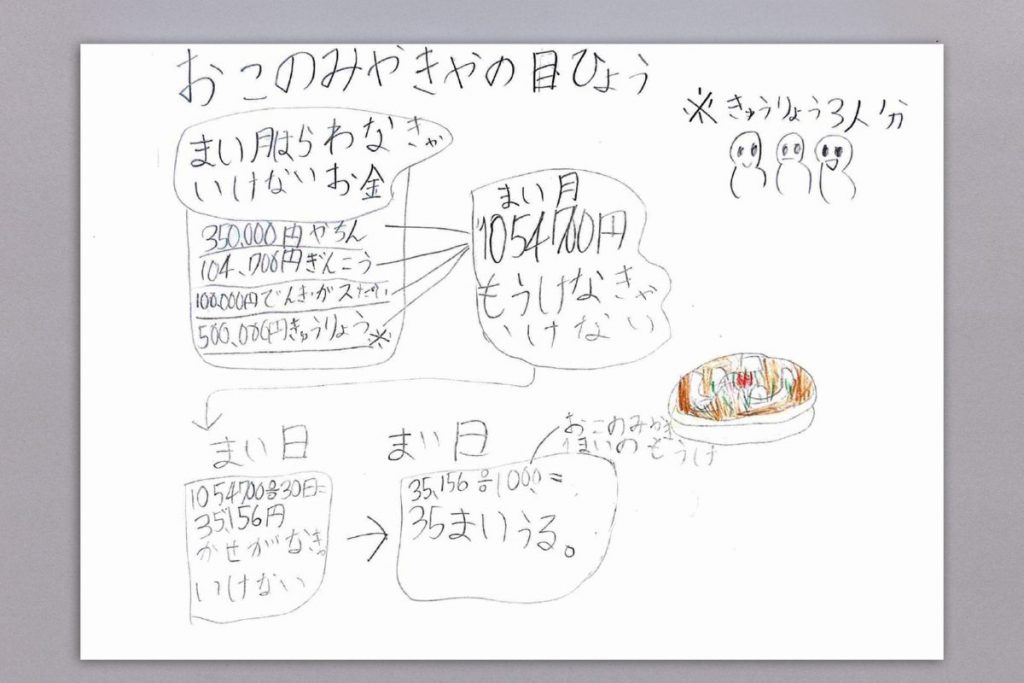 おこのみやきやの目ひょう
※きゅうりょう3人分
まい月はらわなきゃ
いけないお金
350,000円やちん
104,700円ぎんこう
100,000円でんきガスだい
500,000円きゅうりょう※
まい月
1054700円
もうけなきゃ
いけない
まい日
1054700÷30日=
35,156円
かせがなき
いけない
まい日
おこのみやき
まいのもうけ
35,156÷1000=
35まいうる。